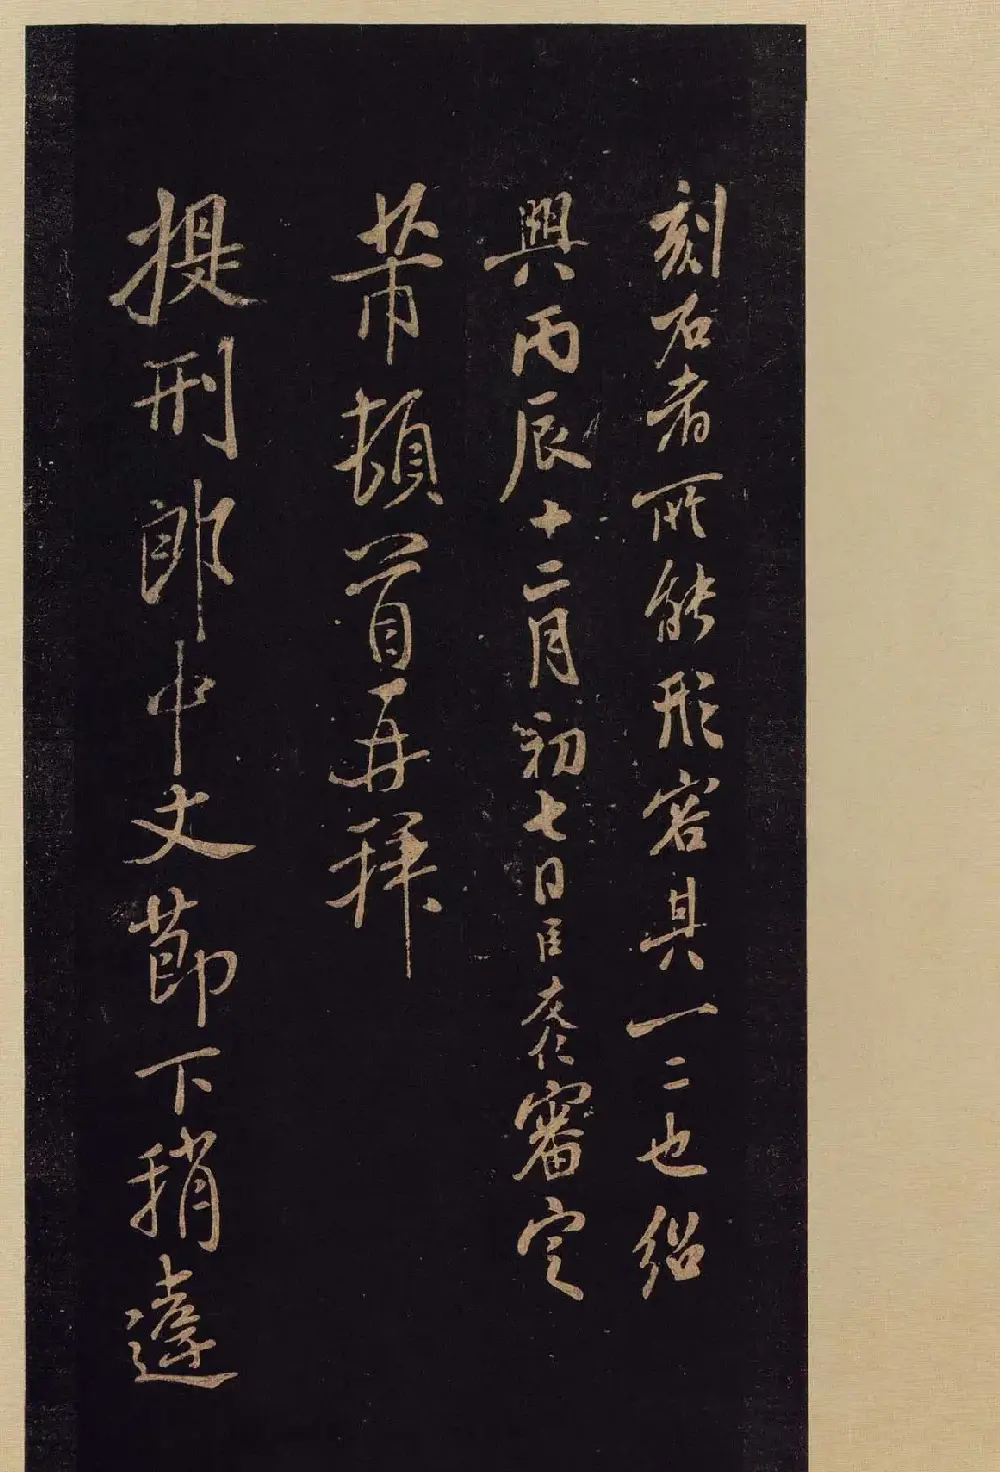 刻石者所能形容其一二也紹
興丙辰十二月初七日臣友仁審定
芾頓首再拜
提刑郎中文節下稍違